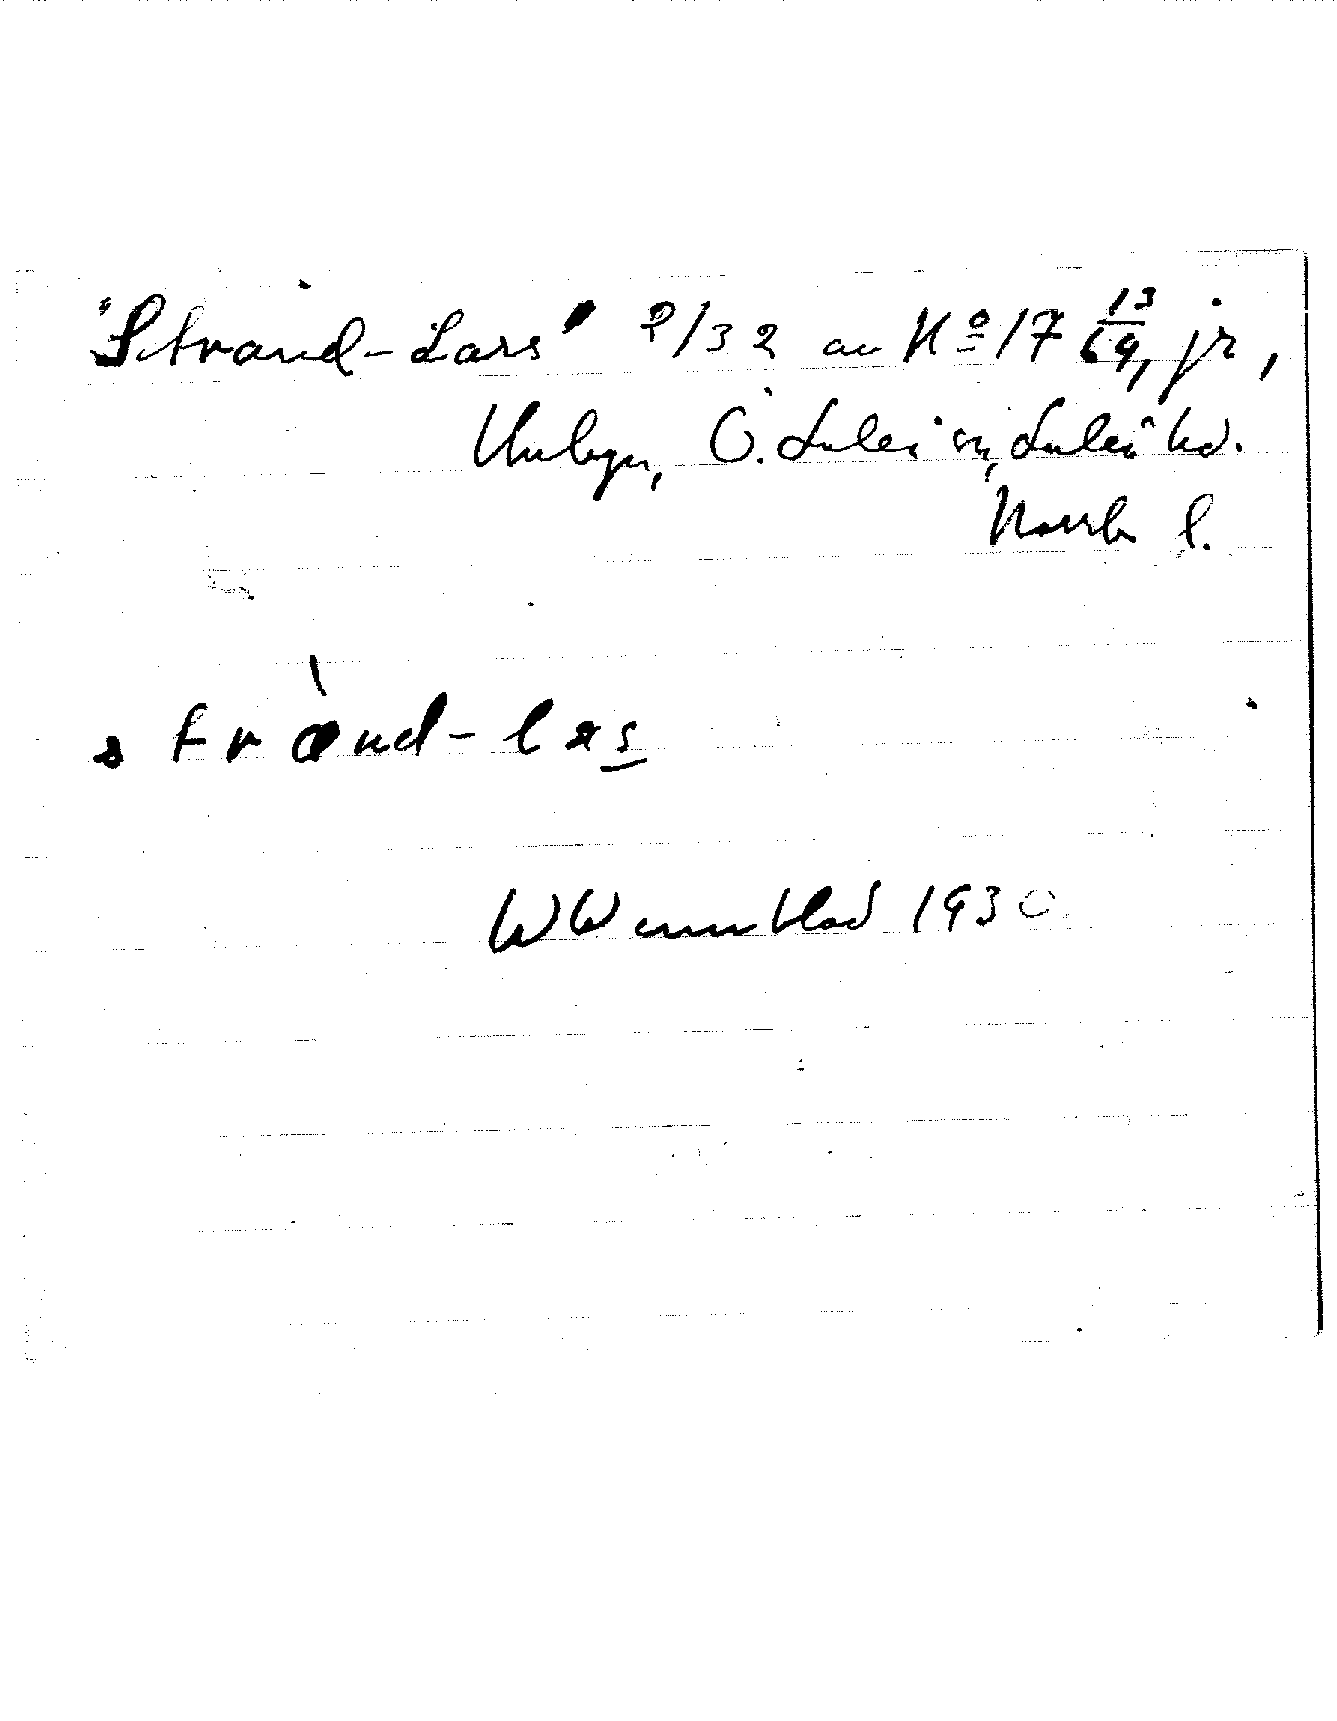 "Strand-Lars" 2/32 av No 17 13/69, jr,
Unbyn, Ö. Luleå sn, Luleå hd.
Norrb l.
strànd-las
WWennblad 1930